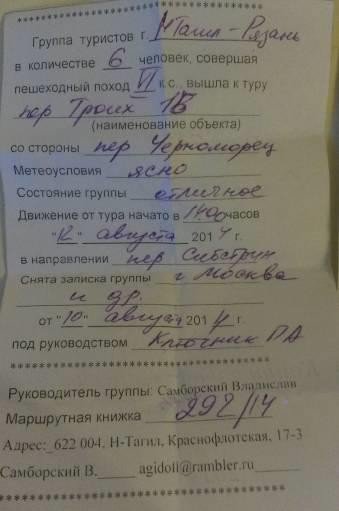 ****************************************
Группа туристов г. Н Тагил – Рязань
в количестве 6 человек, совершая
пешеходный поход VI к.с., вышла к туру
пер Троих 1Б
(наименование объекта)
со стороны пер Черноморец
Метеоусловия ясно
Состояние группы отличное
Движение от тура начато в 14:00 часов
"12" августа 2014 г.
в направлении пер
Снята записка группы г Москва
и др.
от "10" августа 2014 г.
под руководством Ключник ПА
****************************************
Руководитель группы: Самборский Владислав
Маршрутная книжка 292/14
Адрес:_622 004, Н-Тагил, Краснофлотская, 17-3
Самборский В.____ agidoll@rambler.ru____
****************************************